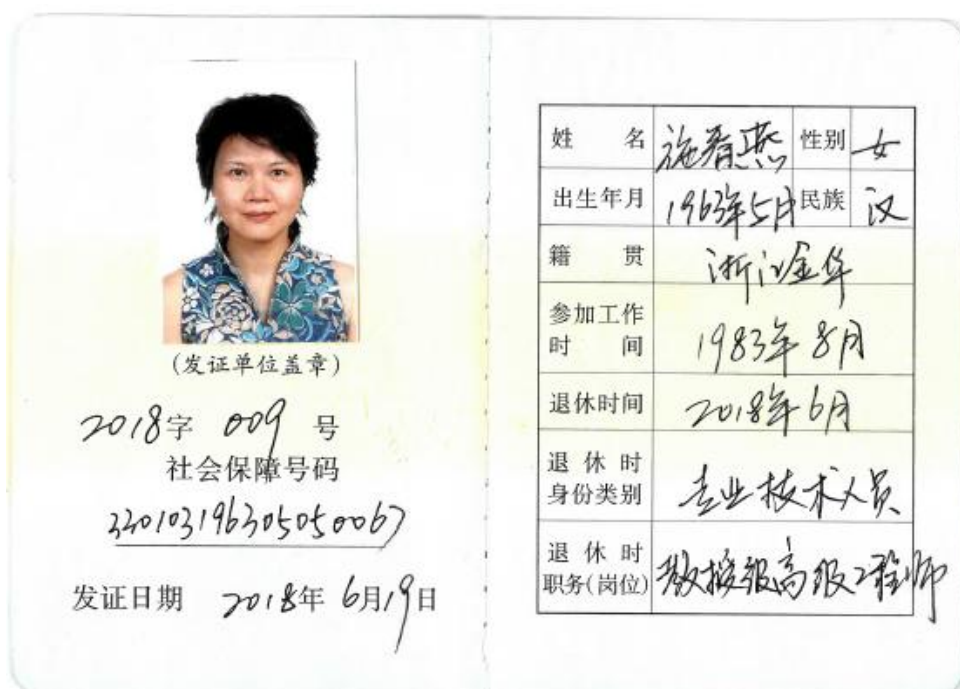 (发证单位盖章)
2018字 009 号
社会保障号码
330103196305050067
发证日期 2018年6月19日
姓名 施春燕 性别 女
出生年月 1963年5月 民族 汉
籍贯 浙江金华
参加工作时间 1983年8月
退休时间 2018年6月
退休时身份类别 专业技术人员
退休时职务(岗位) 教授级高级工程师